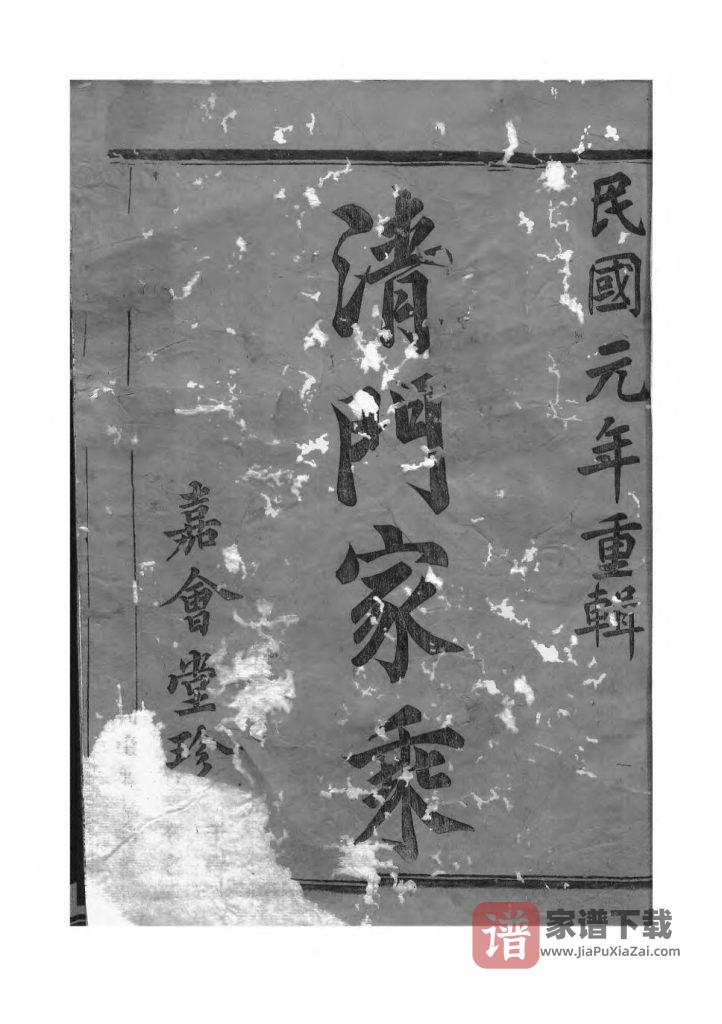 民國元年重輯
清門家乘
嘉會堂珍
谱
家谱下载
www.JiaPuXiaZai.com